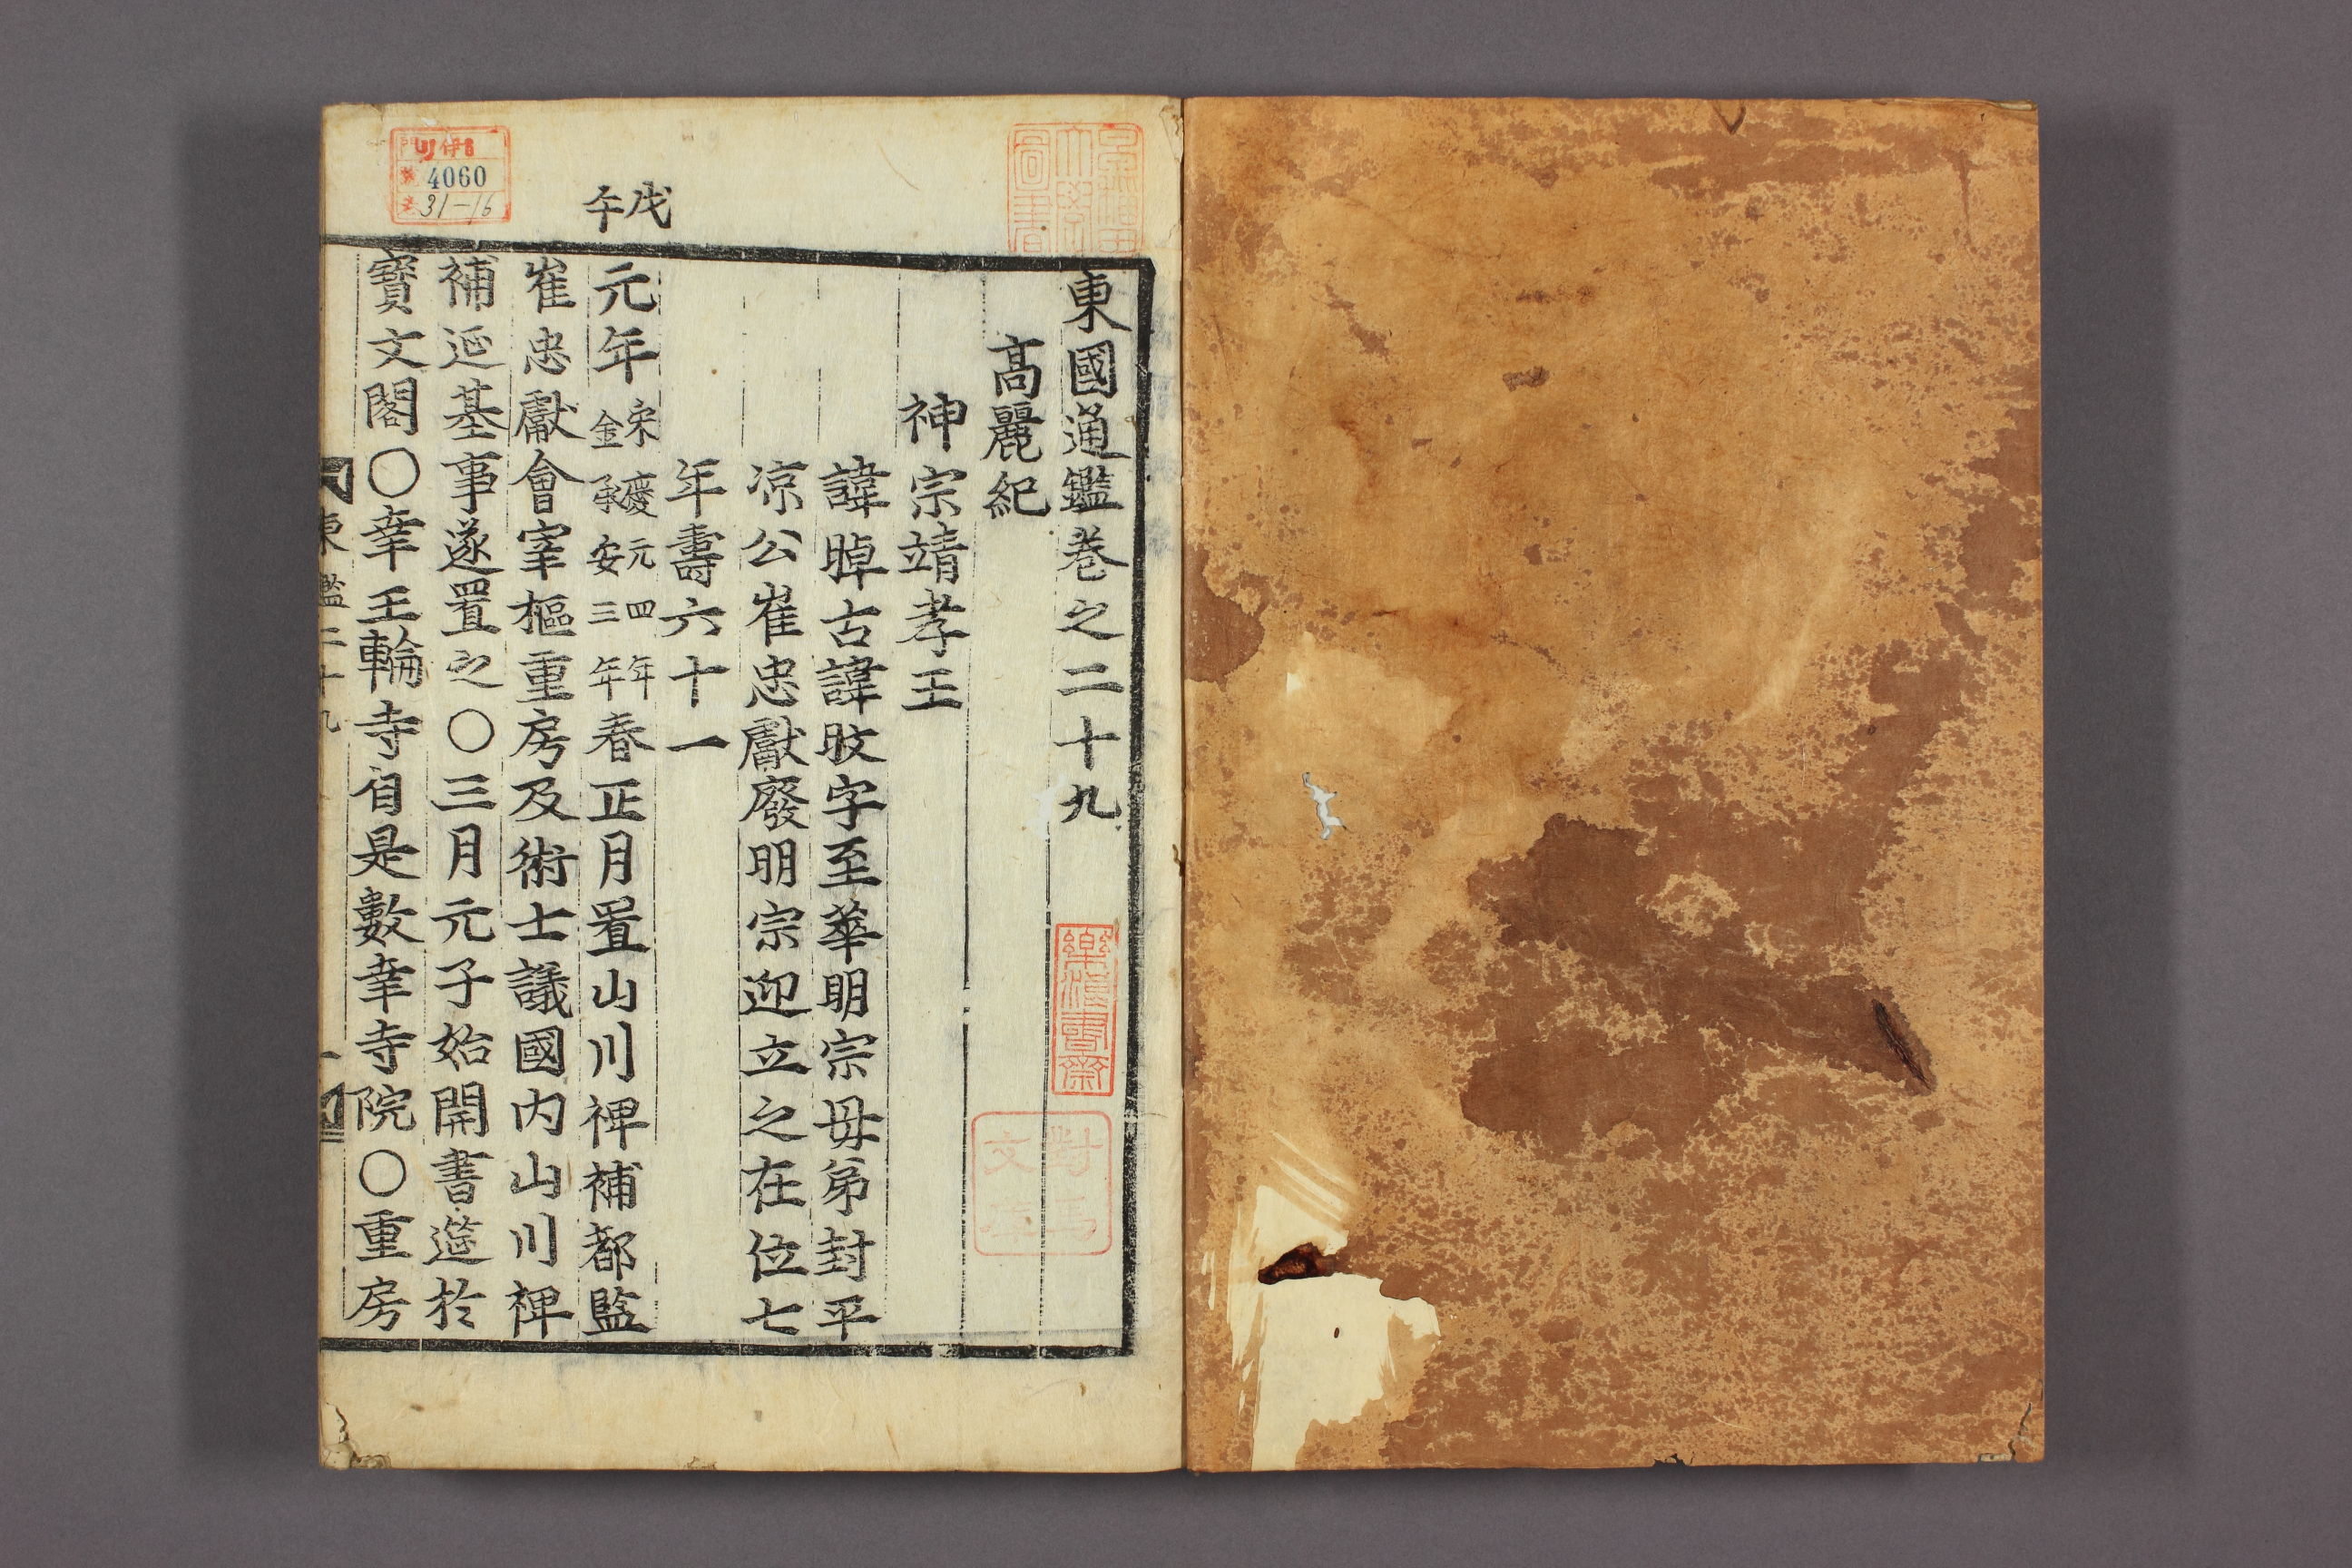 東國通鑑卷之二十九
高麗紀
神宗靖孝王
諱晫古諱旼字至華明宗母弟封平
凉公崔忠獻廢明宗迎立之在位七
年壽六十一
戊午
元年宋慶元四年金承安三年春正月置山川裨補都監
崔忠獻會宰樞重房及術士議國內山川裨
補延基事遂置之○三月元子始開書筵於
寶文閣○幸王輪寺自是數幸寺院○重房
東鑑二十九
一
4060
31-16
樂浪書齋